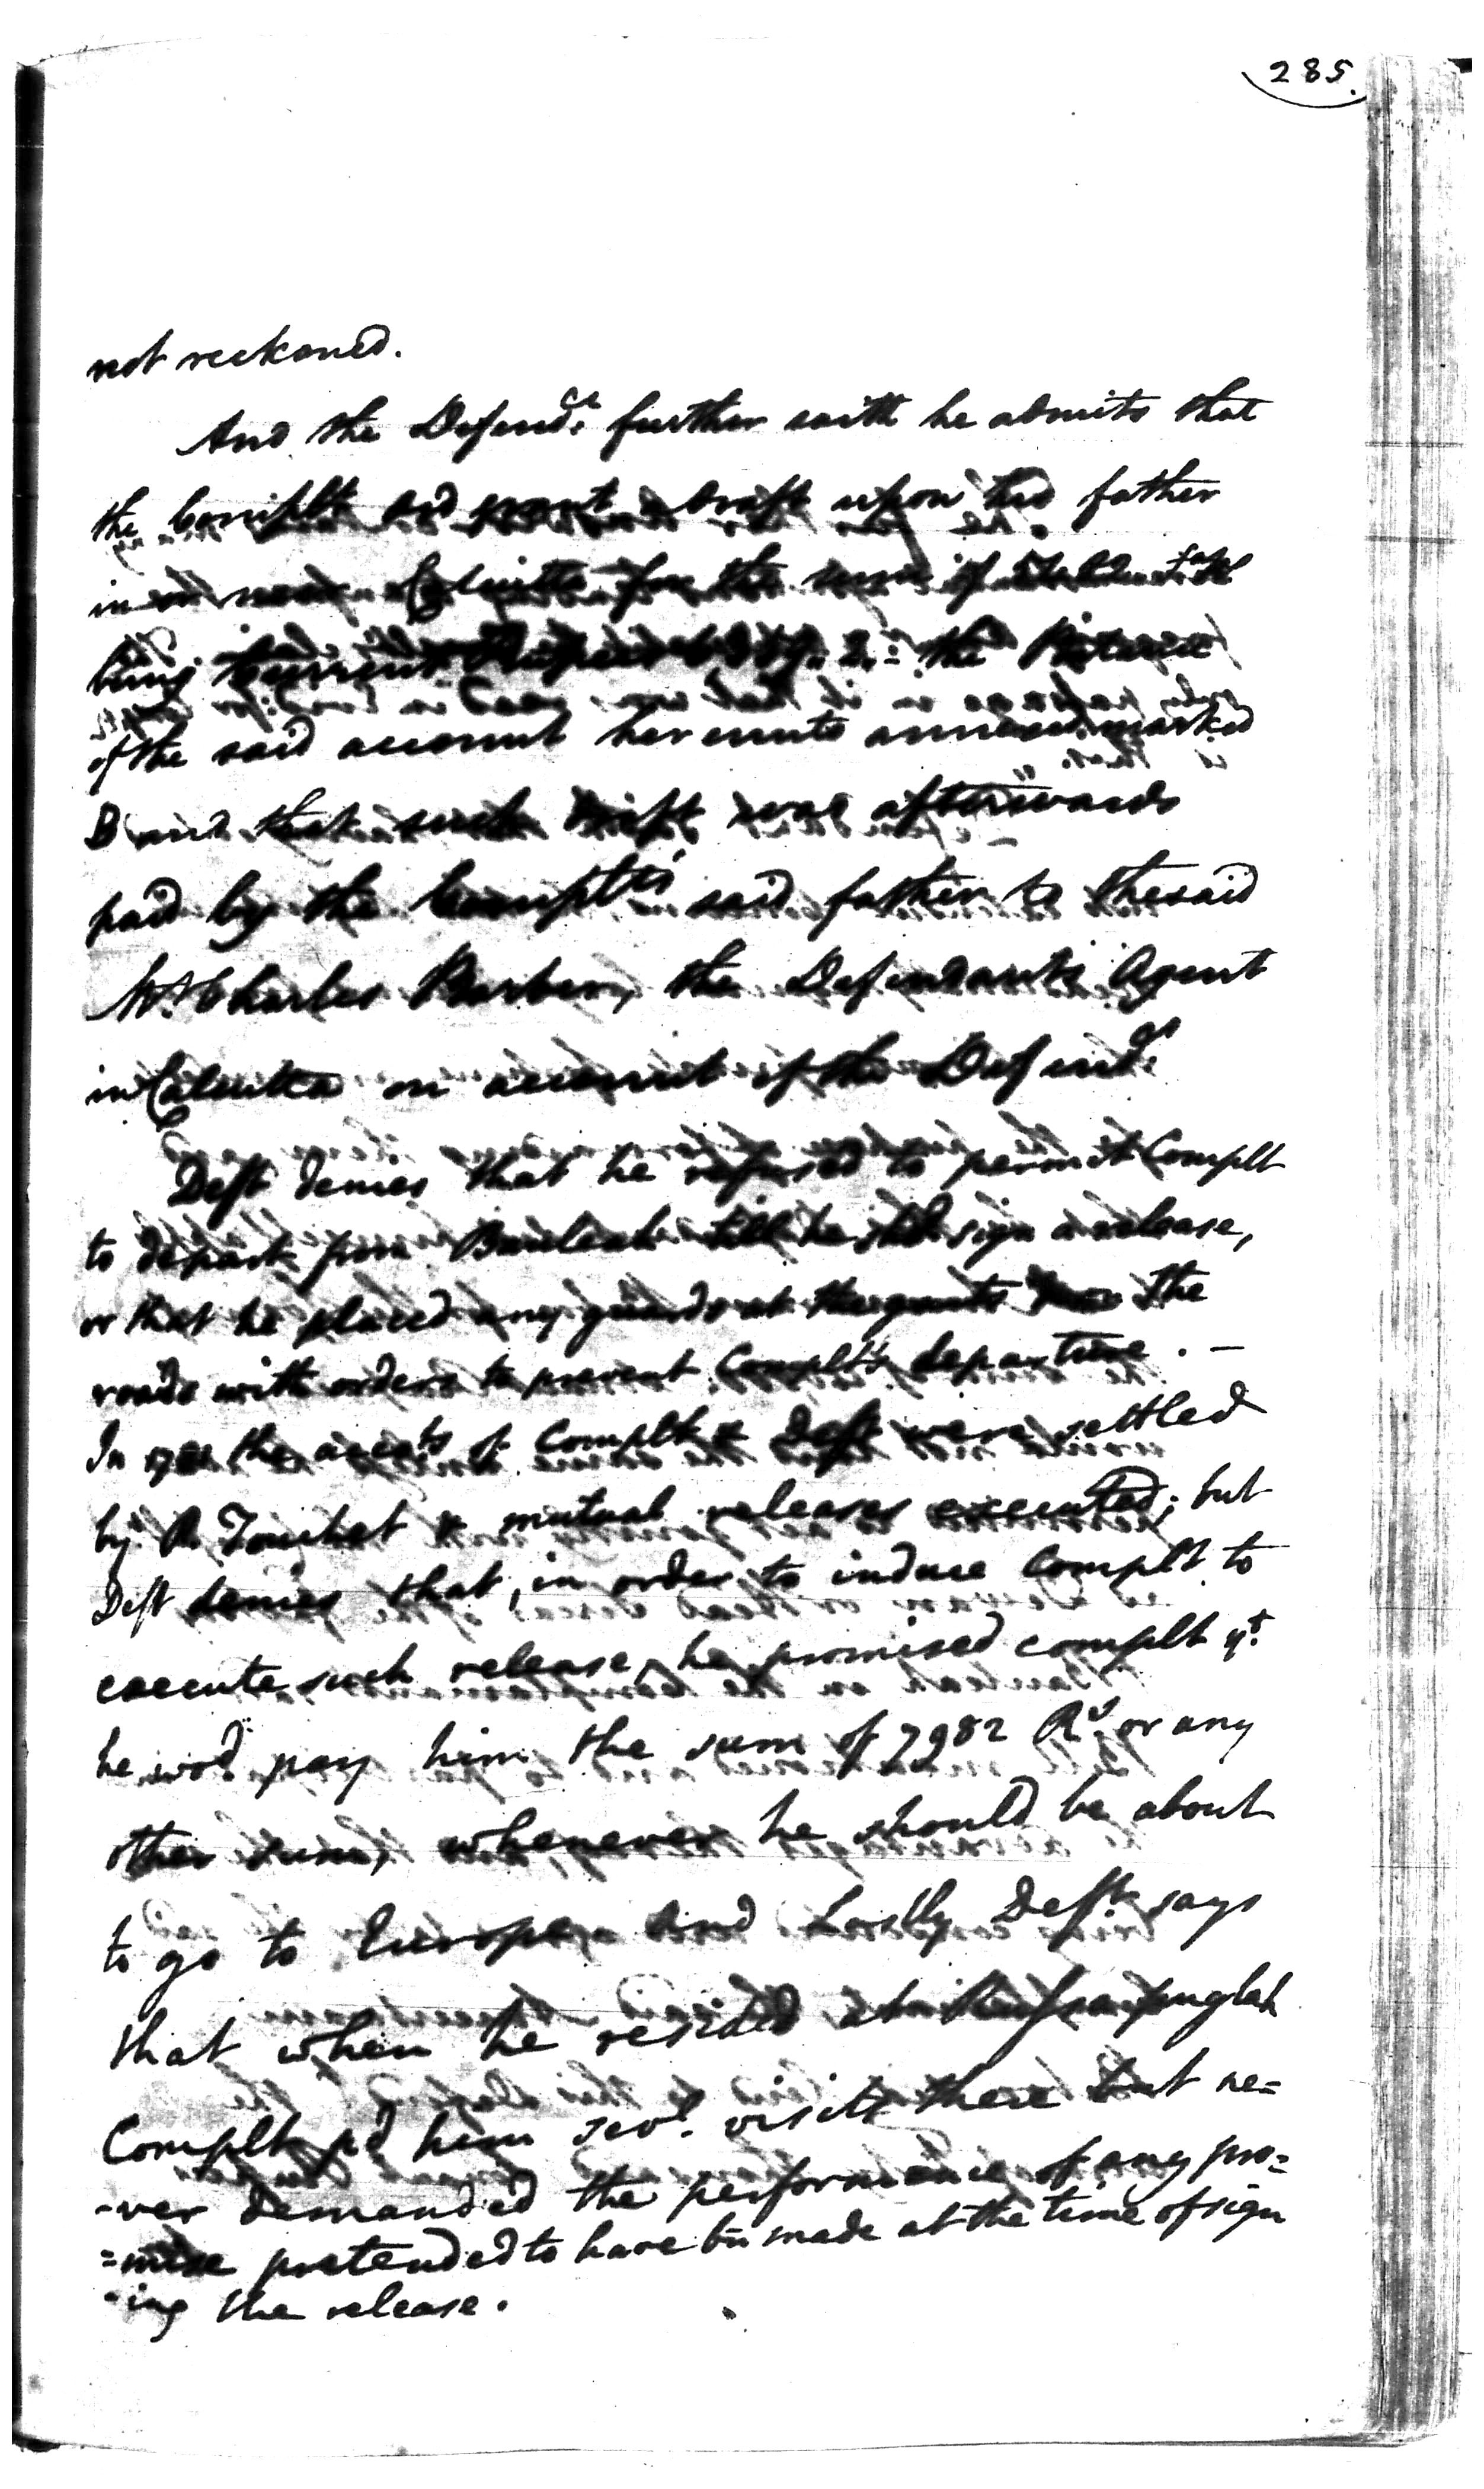 285.
not reckoned.
And the Defend.t further saith he admits that
the Complt did grant a draft upon his father
in or near Calcutta for the sum of
being Current Rupees the Balance
of the said account hereunto annexed marked
B and that such draft was afterwards
paid by the Complts' said father to the said
Mr. Charles Barber, the Defendants Agent
in Calcutta on account of the Defend.t
Deft denies that he refused to permit Complt
to depart from Bauleah till he shd sign a release,
or that he placed any guards at the the
roads with orders to prevent Complt's departure. —
In the accts of Complt & Deft were settled
by P. Touchet & mutual releases executed; but
Deft denies that, in order to induce Complt to
execute such release, he promised complt yt.
he wod. pay him the sum of 7982 Rs. or any
other sum, whenever he should be about
to go to Europe, And Lastly Deft. says
that when he resided at
Complt pd him sevl. visits there but ne=
-ver demanded the performance of any pro=
=mise pretended to have bn made at the time of sign
-ing the release.